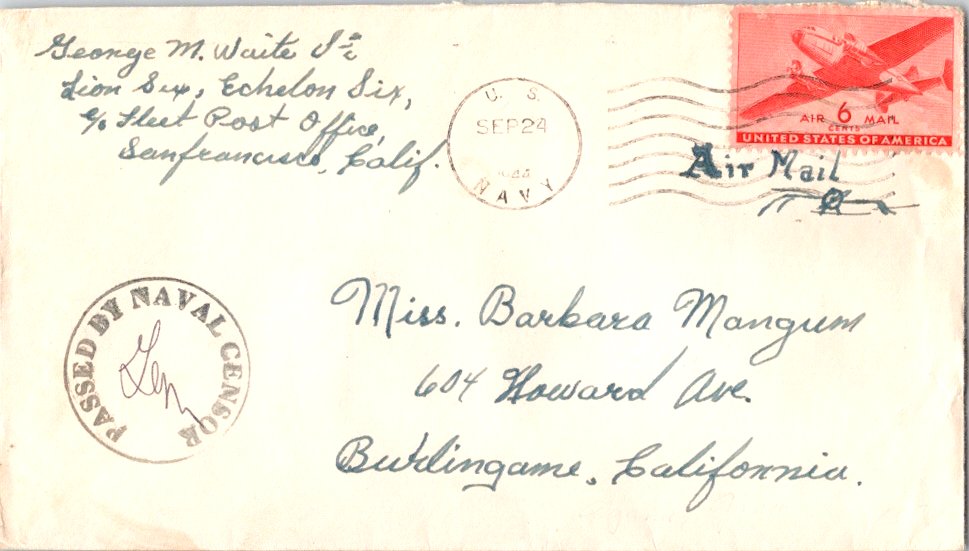 George M. Waite S 2/c
Lion Six, Echelon Six,
c/o Fleet Post Office,
Sanfrancisco, Calif.
U. S.
SEP 24
NAVY
AIR 6 MAIL
CENTS
UNITED STATES OF AMERICA
Air Mail
PASSED BY NAVAL CENSOR
Miss. Barbara Mangum
604 Howard Ave.
Burlingame, California.